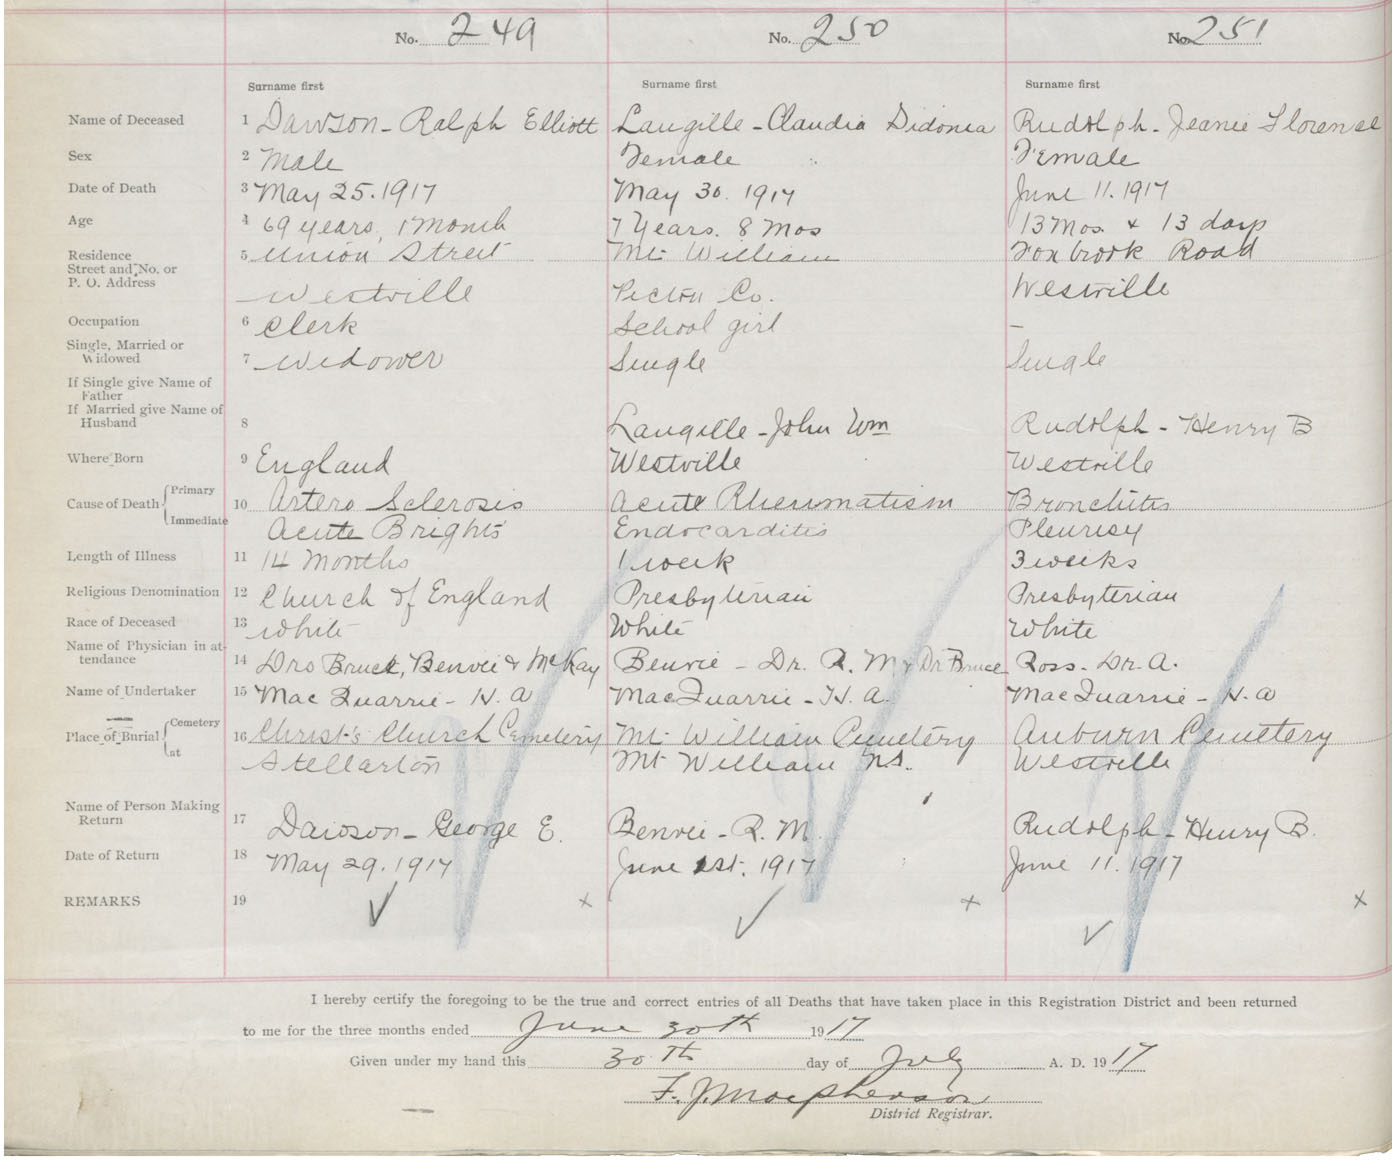 No. 249 No. 250 No. 251
Surname first Surname first Surname first
Name of Deceased 1 Dawson - Ralph Elliott Langille - Claudia Sidonia Rudolph - Jeanie Florence
Sex 2 Male Female Female
Date of Death 3 May 25. 1917 May 30. 1917 June 11. 1917
Age 4 69 years, 1 month 7 Years. 8 Mos 13 Mos & 13 days
Residence 5 Union Street Mt William Foxbrook Road
Street and No. or
P. O. Address Westville Pictou Co. Westville
Occupation 6 Clerk School girl –
Single, Married or
Widowed 7 Widower Single Single
If Single give Name of
Father
If Married give Name of
Husband 8 Langille - John Wm Rudolph - Henry B
Where Born 9 England Westville Westville
Cause of Death Primary 10 Artero Sclerosis Acute Rheumatism Bronchitis
Immediate Acute Brights Endocarditis Pleurisy
Length of Illness 11 14 Months 1 week 3 weeks
Religious Denomination 12 Church of England Presbyterian Presbyterian
Race of Deceased 13 White White White
Name of Physician in at-
tendance 14 Drs Bruce, Benvie & McKay Benvie - Dr. R. M & Dr Bruce Ross - Dr. A.
Name of Undertaker 15 MacQuarrie - H. A MacQuarrie - H. A. MacQuarrie - H. A
Place of Burial Cemetery 16 Christ's Church Cemetery Mt William Cemetery Auburn Cemetery
at Stellarton Mt William N.S. Westville
Name of Person Making
Return 17 Dawson - George E. Benvie - R. M. Rudolph - Henry B.
Date of Return 18 May 29. 1917 June 1st. 1917 June 11. 1917
REMARKS 19 ✓ x ✓ x ✓ x
I hereby certify the foregoing to be the true and correct entries of all Deaths that have taken place in this Registration District and been returned
to me for the three months ended June 30th 1917
Given under my hand this 30th day of July A. D. 1917
F. J. Macpherson
District Registrar.